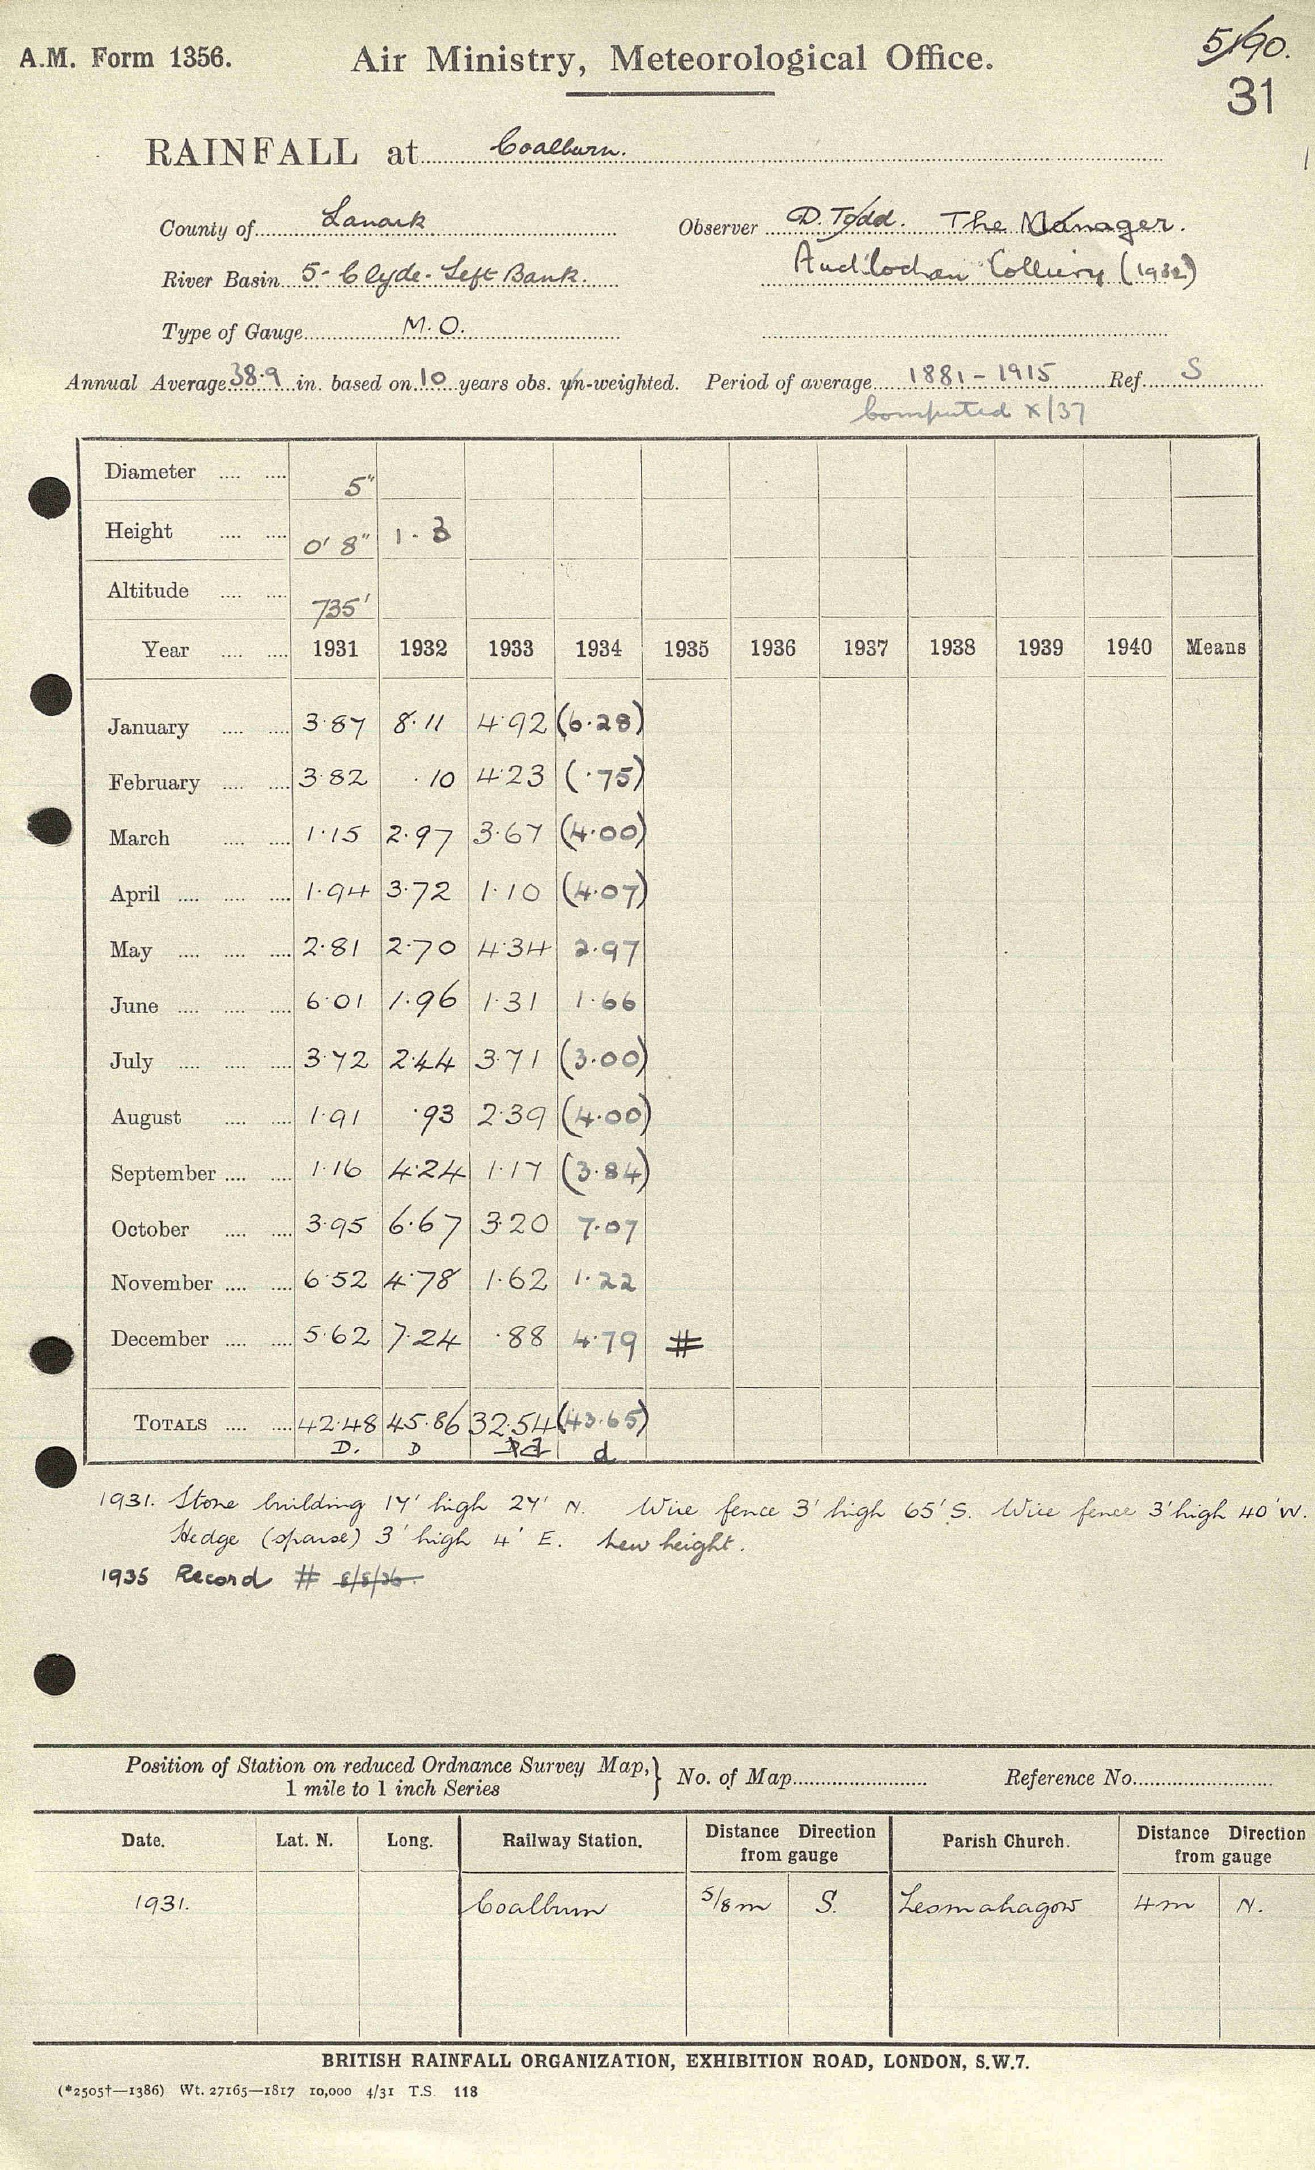 A.M. Form 1356. Air Ministry, Meteorological Office. 5/90.
31
RAINFALL at Coalburn.
County of Lanark Observer D. Todd. The Manager.
River Basin 5 - Clyde - Left Bank. Auchlochan Colliery (1932)
Type of Gauge M.O.
Annual Average 38.9 in. based on 10 years obs. un-weighted. Period of average 1881 - 1915 Ref. S
Computed x/37
Diameter .... .... 5"
Height .... .... 0' 8" 1.3
Altitude .... .... 735'
Year .... .... 1931 1932 1933 1934 1935 1936 1937 1938 1939 1940 Means
January .... .... 3.87 8.11 4.92 (6.28)
February .... .... 3.82 .10 4.23 (.75)
March .... .... 1.15 2.97 3.67 (4.00)
April .... .... .... 1.94 3.72 1.10 (4.07)
May .... .... .... 2.81 2.70 4.34 2.97
June .... .... .... 6.01 1.96 1.31 1.66
July .... .... .... 3.72 2.44 3.71 (3.00)
August .... .... 1.91 .93 2.39 (4.00)
September .... .... 1.16 4.24 1.17 (3.84)
October .... .... 3.95 6.67 3.20 7.07
November .... .... 6.52 4.78 1.62 1.22
December .... .... 5.62 7.24 .88 4.79 #
TOTALS .... .... 42.48 45.86 32.54 (43.65)
D. D d d
1931. Stone building 17' high 27' N. Wire fence 3' high 65' S. Wire fence 3' high 40' W.
Hedge (sparse) 3' high 4' E. New height.
1935 Record # 8/8/36.
Position of Station on reduced Ordnance Survey Map, } No. of Map Reference No.
1 mile to 1 inch Series
Date. Lat. N. Long. Railway Station. Distance Direction Parish Church. Distance Direction
from gauge from gauge
1931. Coalburn 5/8 m S. Lesmahagow 4 m N.
BRITISH RAINFALL ORGANIZATION, EXHIBITION ROAD, LONDON, S.W.7.
(*2505†—1386) Wt. 27165—1817 10,000 4/31 T.S. 118